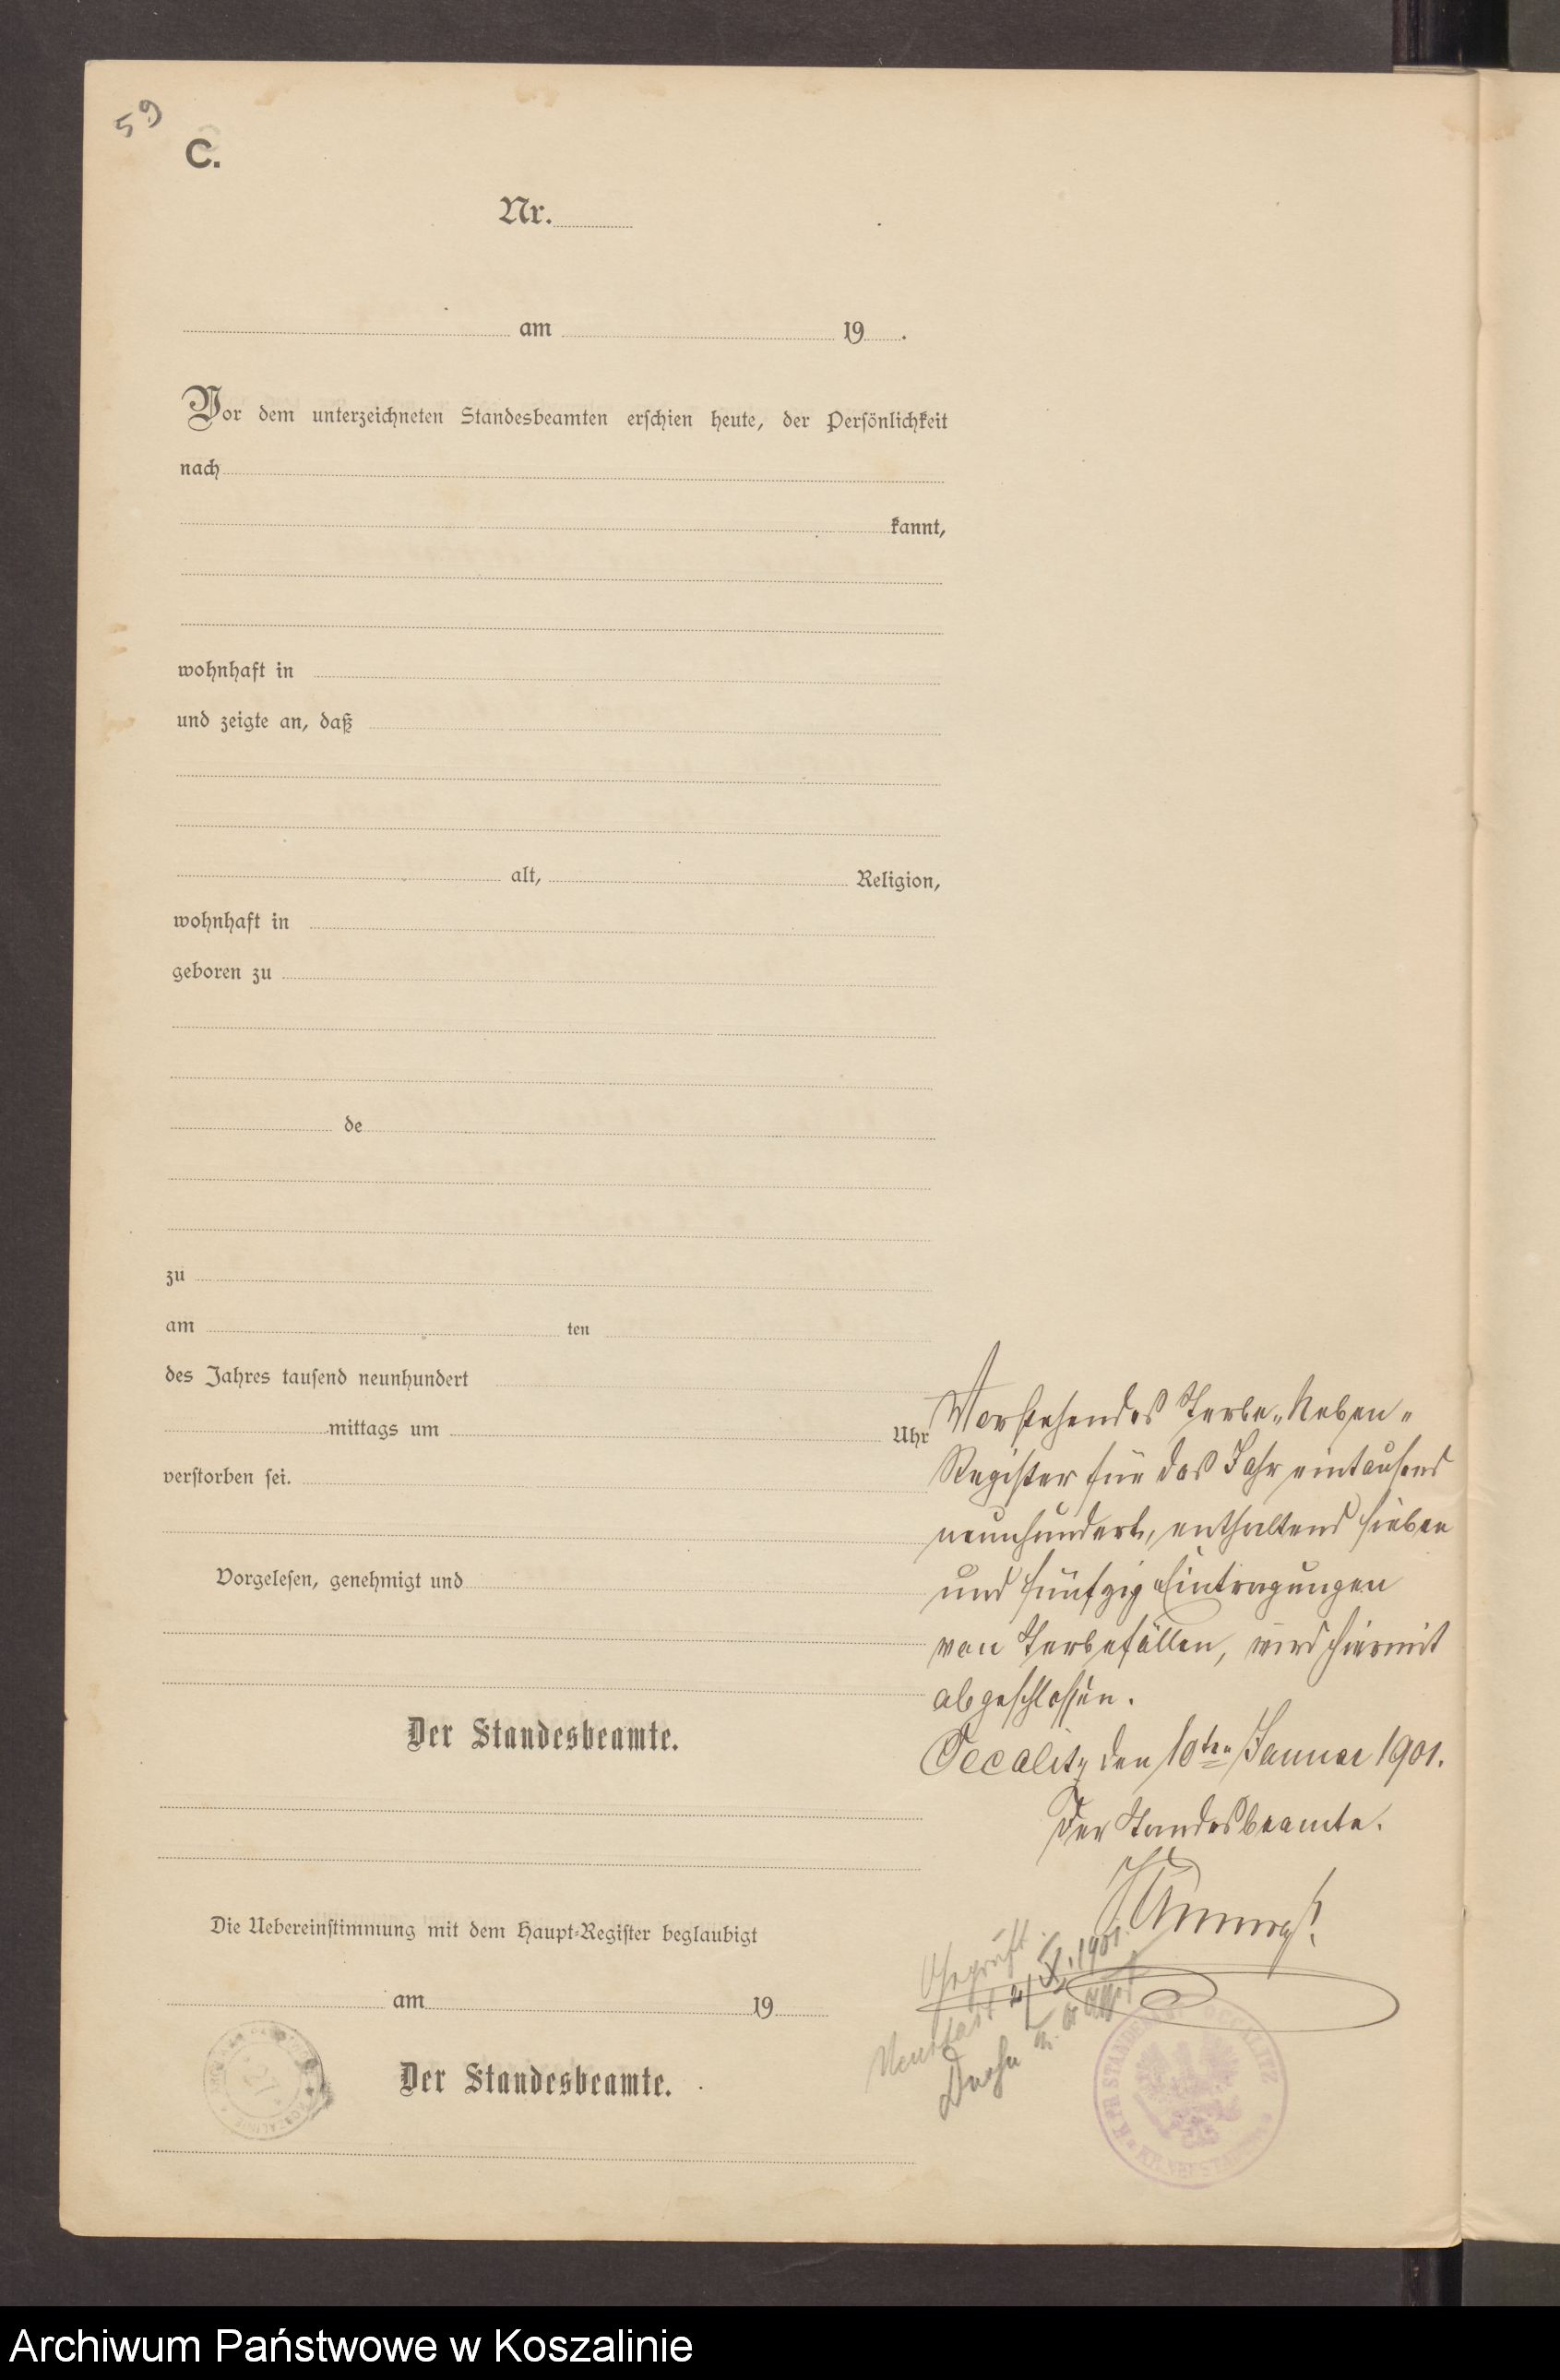 59
C.
Nr.
am 19 .
Vor dem unterzeichneten Standesbeamten erschien heute, der Persönlichkeit
nach
kannt,
wohnhaft in
und zeigte an, daß
alt, Religion,
wohnhaft in
geboren zu
de
zu
am ten
des Jahres tausend neunhundert
mittags um Uhr
verstorben sei.
Vorgelesen, genehmigt und
Der Standesbeamte.
Die Uebereinstimmung mit dem Haupt-Register beglaubigt
am 19
Der Standesbeamte.
Vorstehendes Sterbe-Neben-
Register für das Jahr eintausend
neunhundert, enthaltend sieben
und fünfzig Eintragungen
von Sterbefällen, wird hiermit
abgeschlossen.
Occalitz den 10ten Januar 1901.
Der Standesbeamte.
Geprüft.
Neustadt 1901.
STANDESAMT OCCALITZ
Archiwum Państwowe w Koszalinie